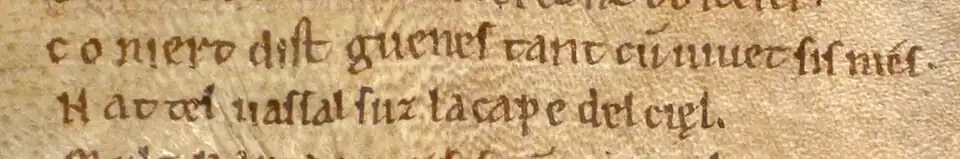 co niert dist guenes tant cū uiuet sis niés.
N at tel uassal suz lacape del cięl.